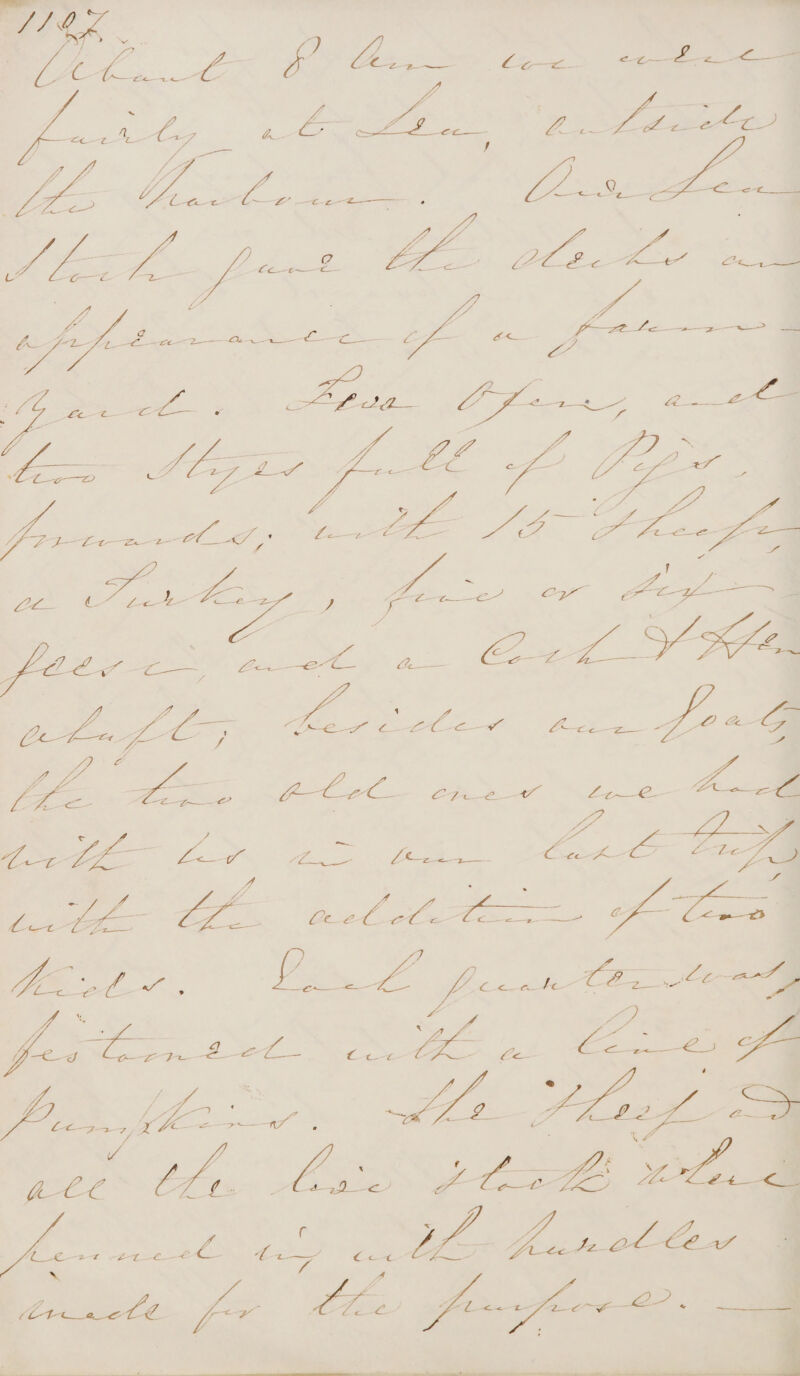 1107
About 8 Am we were
fairly at Sea, outside
the harbour. Our Sea
Stock gave the decks an
appearance of a farm-
yard. Five Oxen, and
two Styes full of Pigs,
forwards; with 15 Sheep,
a Turkey, five or six
geese, and a Cock & Hen
abaft; besides our Goats,
the two old ones we had
with us in our last trip,
with the addition of two
Kids. Each quarter was
festooned with a line of
Pumpkins. The Sheep and
all the live Stock where
penned in, with hurdles
made for the purpose. —